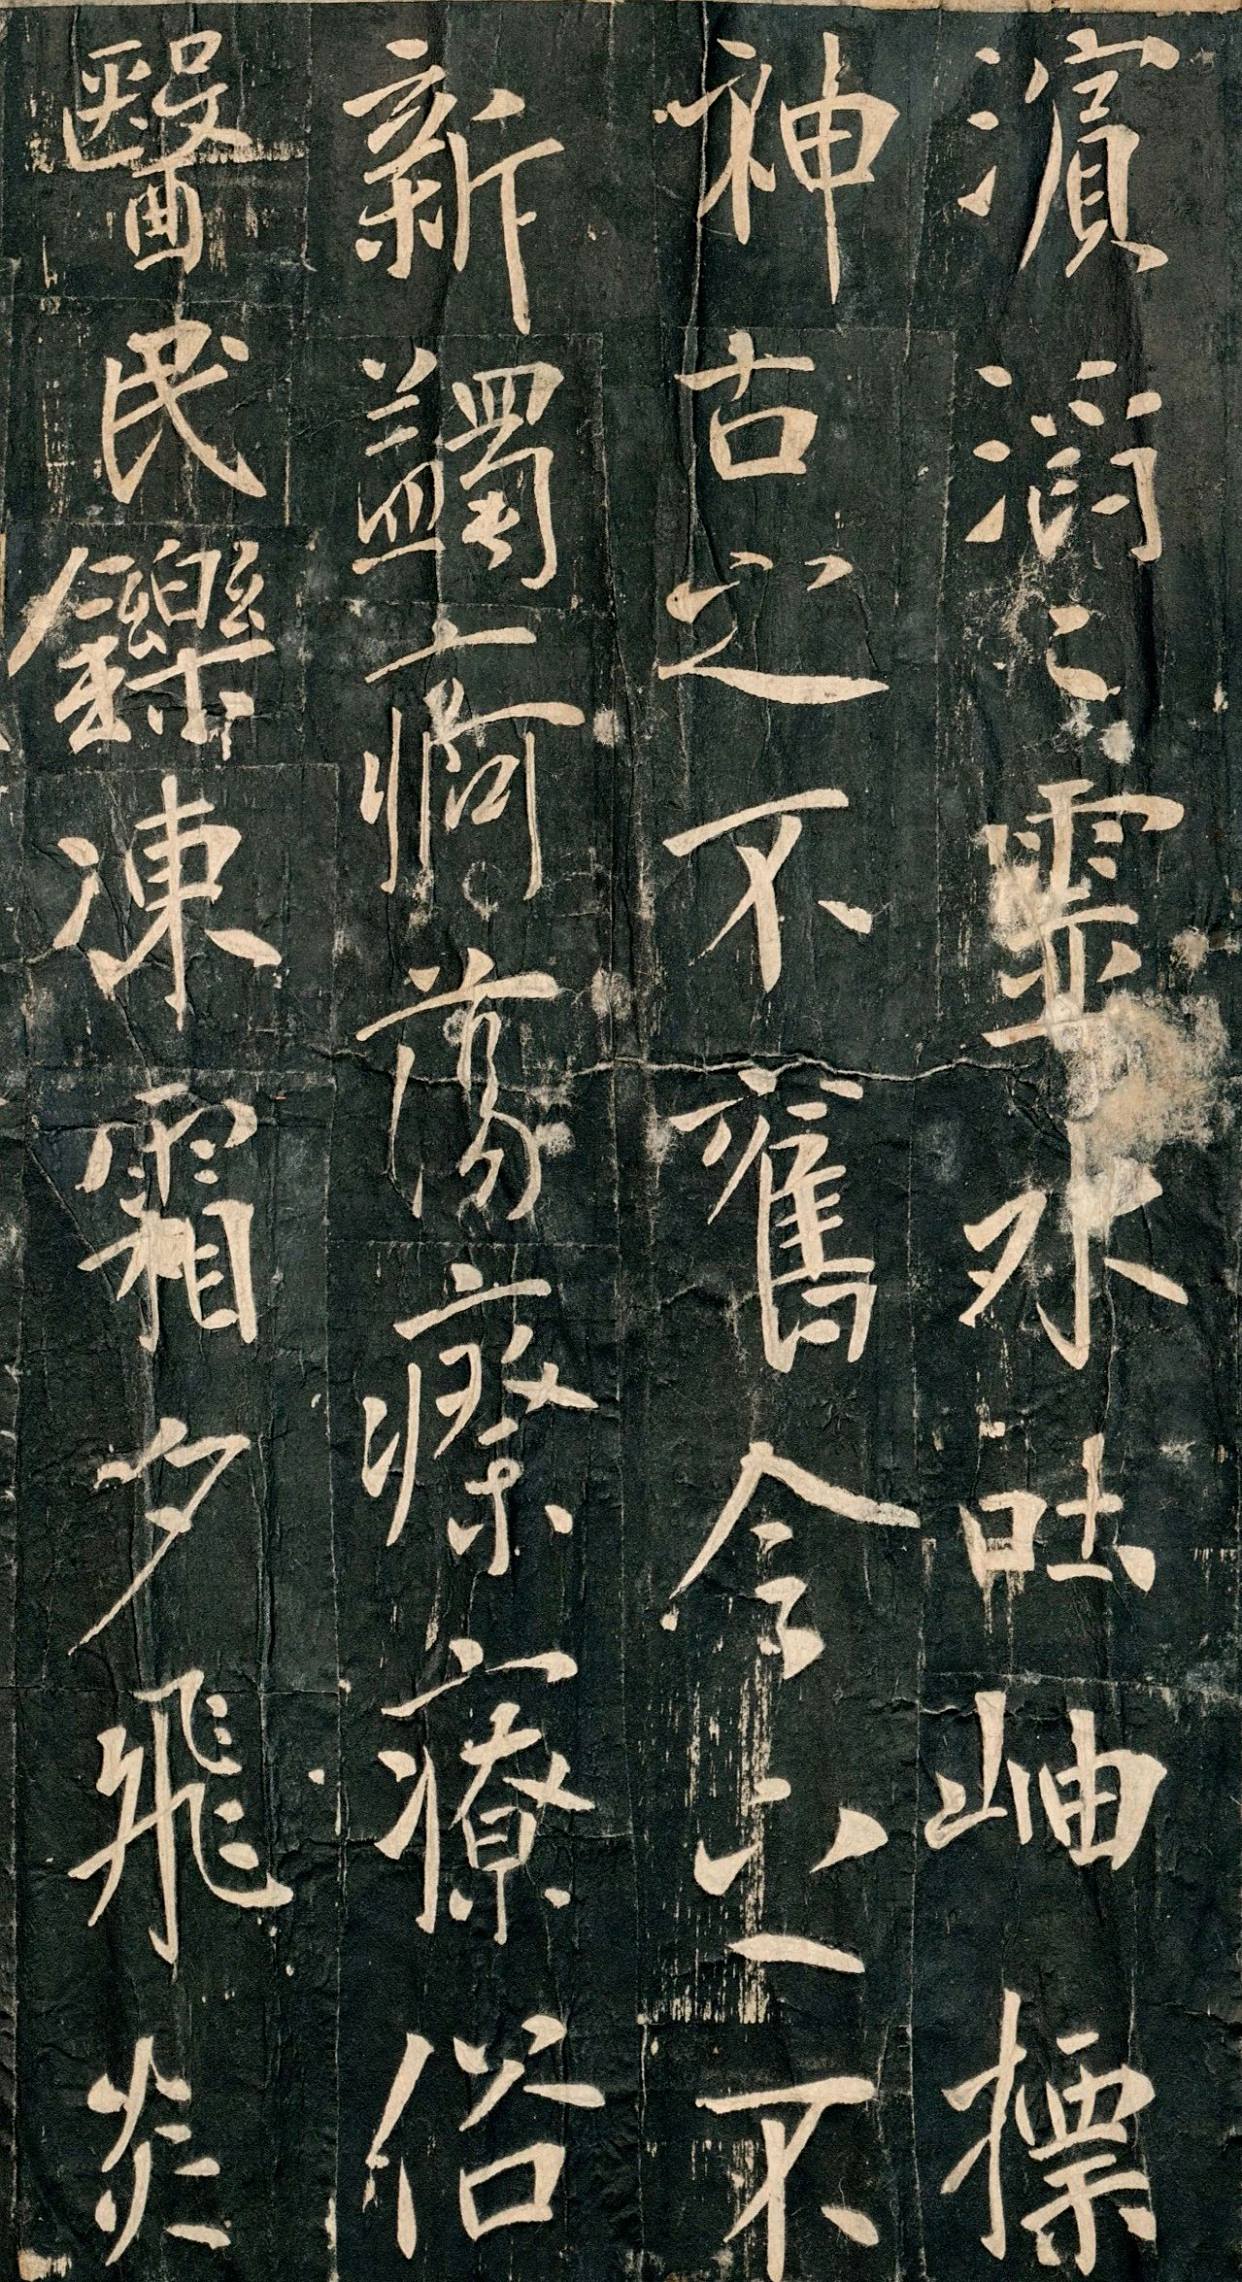 濱滔〻靈水吐岫標
神古之不舊今之不
新蠲痾蕩瘵療俗
醫民鑠凍霜夕飛炎